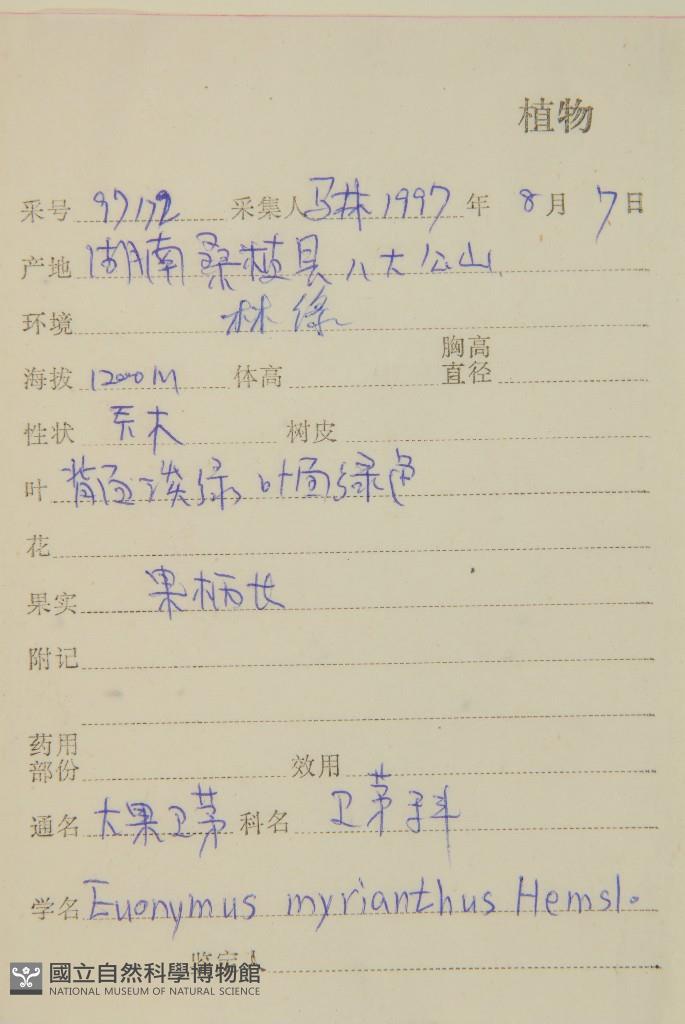 植物
采号 97172 采集人 马林 1997 年 8 月 7 日
产地 湖南桑植县八大公山
环境 林缘
海拔 1200M 体高 胸高直径
性状 乔木 树皮
叶 背面淡绿, 叶面绿色
花
果实 果柄长
附记
药用部份 效用
通名 大果卫茅 科名 卫茅科
学名 Euonymus myrianthus Hemsl.
鉴定人
國立自然科學博物館
NATIONAL MUSEUM OF NATURAL SCIENCE